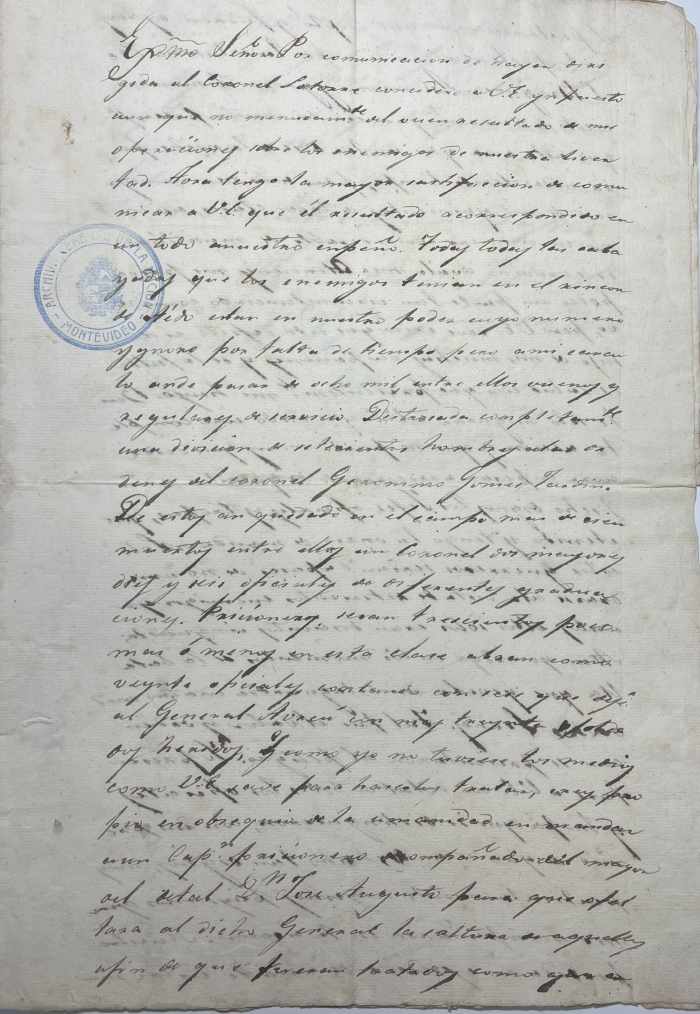 Exmõ Señor. Por comunicacion de hayer diri
gida al Coronel Latorre considero a V.E. ynpuesto
aunque no menudamte. del buen resultado de mis
operaciones sobre los enemigos de nuestra liver
tad. Aora tengo la mayor satisfacion de comu
nicar a V.E. que él resultado a correspondido en
un todo anuestro enpeño. Todas todas las caba
yadas que los enemigos tenian en el rincon
de Aédo estan en nuestro poder cuyo numero
ygnoro por falta de tiempo pero ami caren
lo ande pasar de ocho mil entre ellos buenos y
regulares de servicio. Destrosada completamte.
una division de setecientos hombres alas or
denes del coronel Geronimo Gomes Jardin.
De estos an quedado en el campo mas de cien
muertos entre ellos un Coronel dos mayores
dies y seis oficiales de diferentes gradua
ciones. Pricioneros seran trescientos poco
mas o menos en esta clase abran como
veynte oficiales contando con seis que dejé
al General Avreu con mas treynta solda
dos heridos; Y como yo no tuviese los medios
como V.E. save para haserlos tratar, crey pro
pio en obsequio de la umanidad en mandar
a un Capn. pricionero acompañado del mayor
del detal Dn. José Augusto para que solsi
tara al dicho General la saltura de aquellos
afin de que fueran tratados como